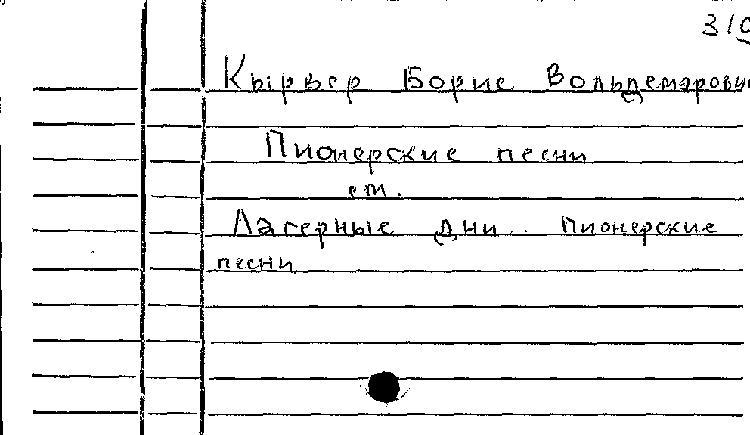 310
Кырвер Борис Вольдемарови
Пионерские песни
см.
Лагерные дни. Пионерские
песни